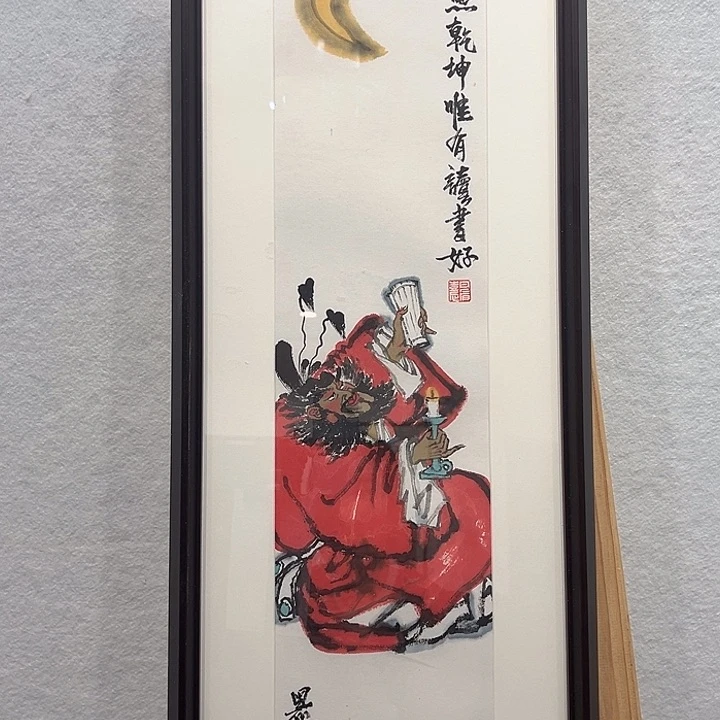 乾坤唯有讀書好